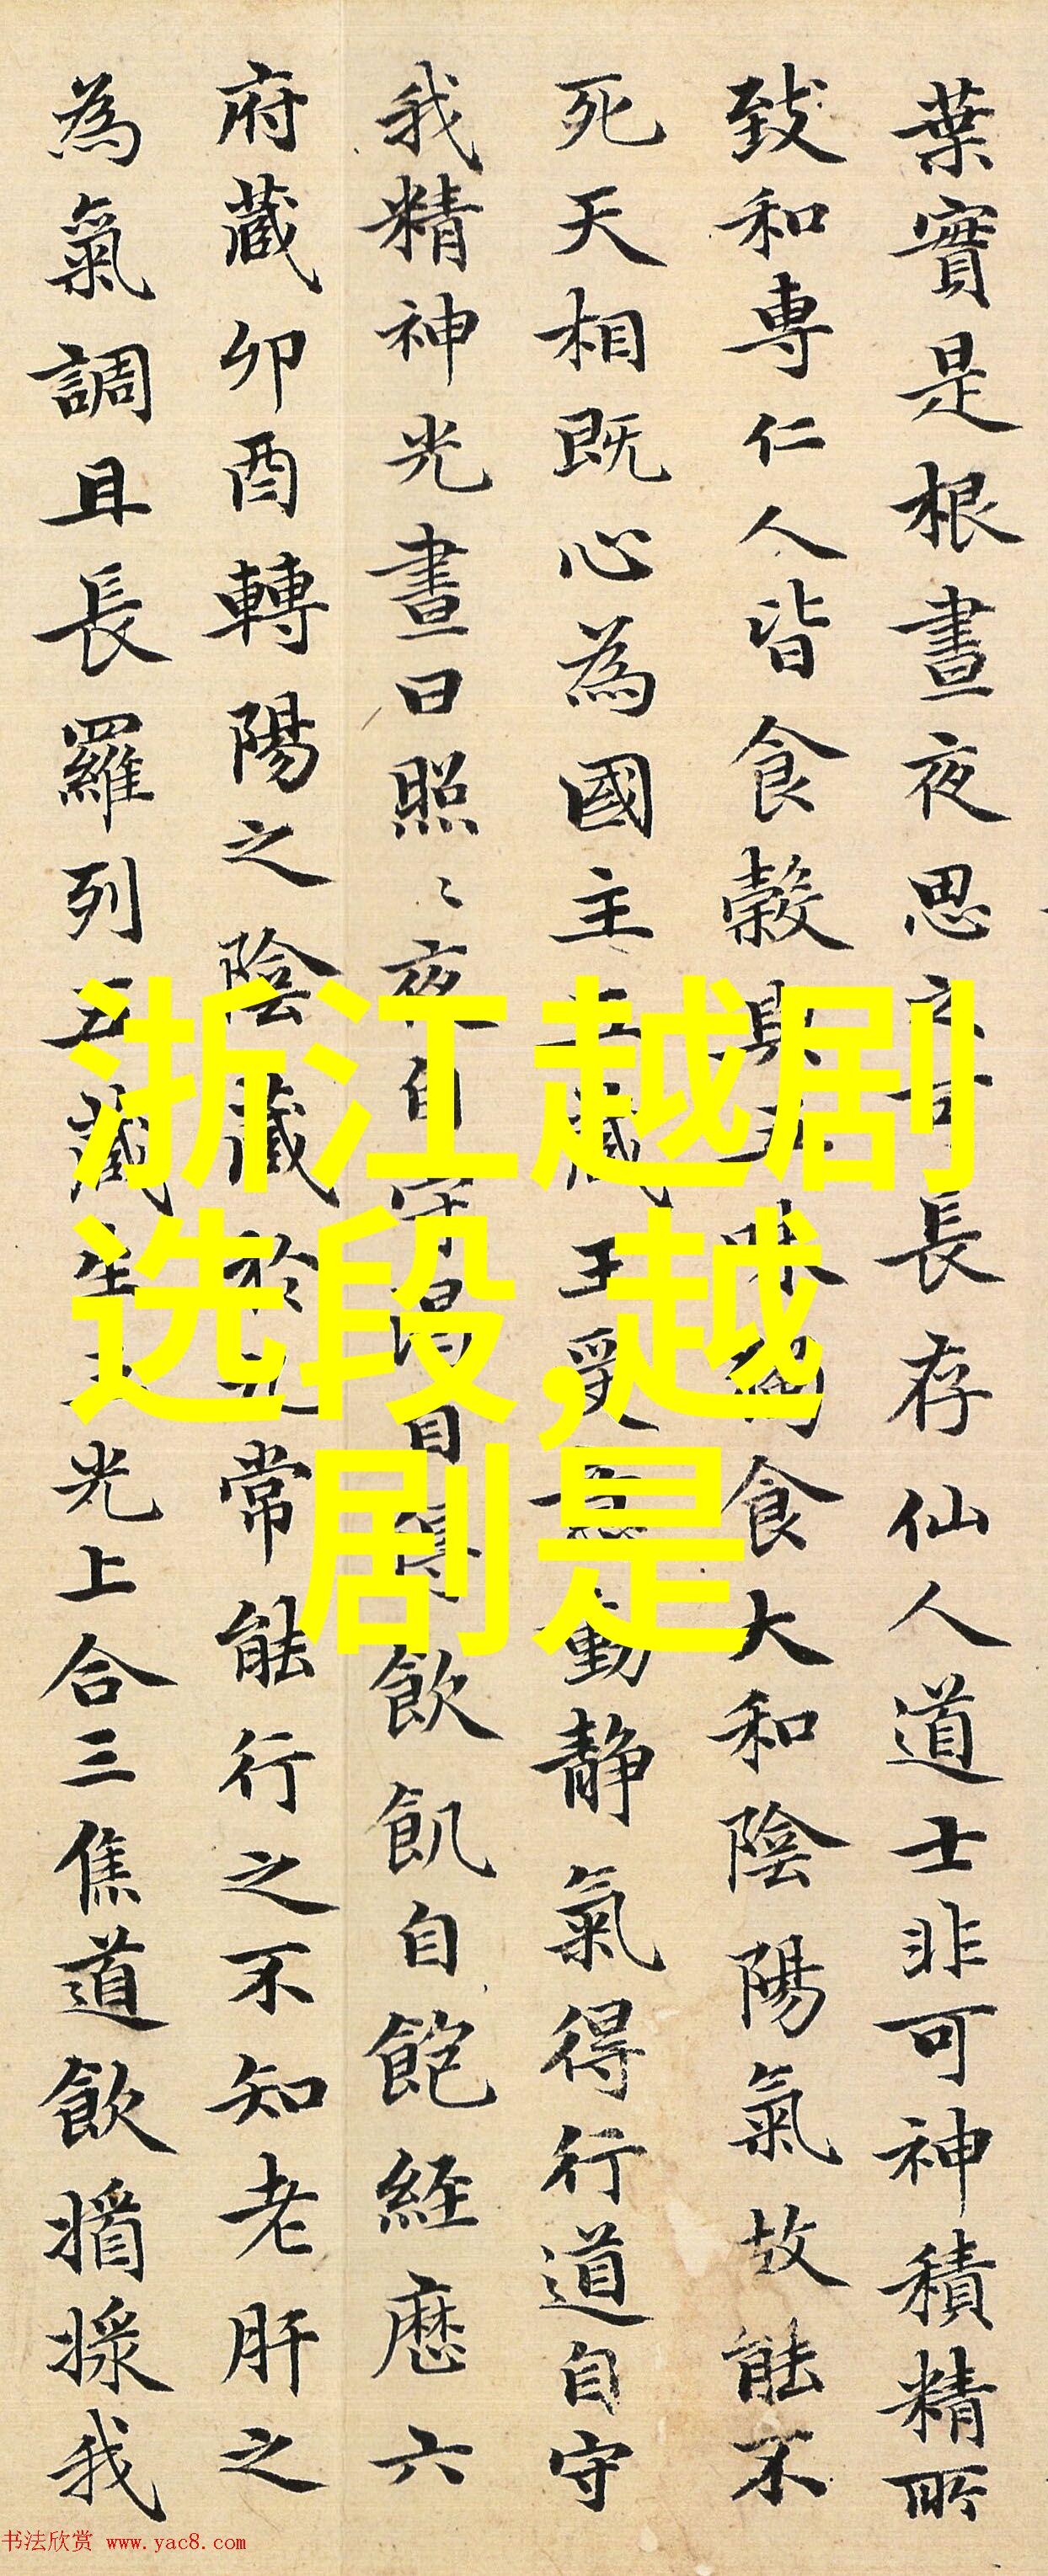 葉實是根晝夜思長存仙人道士非可神積精所
致和專仁人皆食穀與五味食大和陰陽氣故能不
死天相既心為國主五藏王受意動靜氣得行道自守
我精神光晝日照〻夜自守渴自得飲飢自飽經歷六
府藏卯酉轉陽之陰藏於九常能行之不知老肝之
為氣調且長羅列五藏生三光上合三焦道飲我
浙江越剧
选段,越
剧是
书法欣赏 www.yac8.com